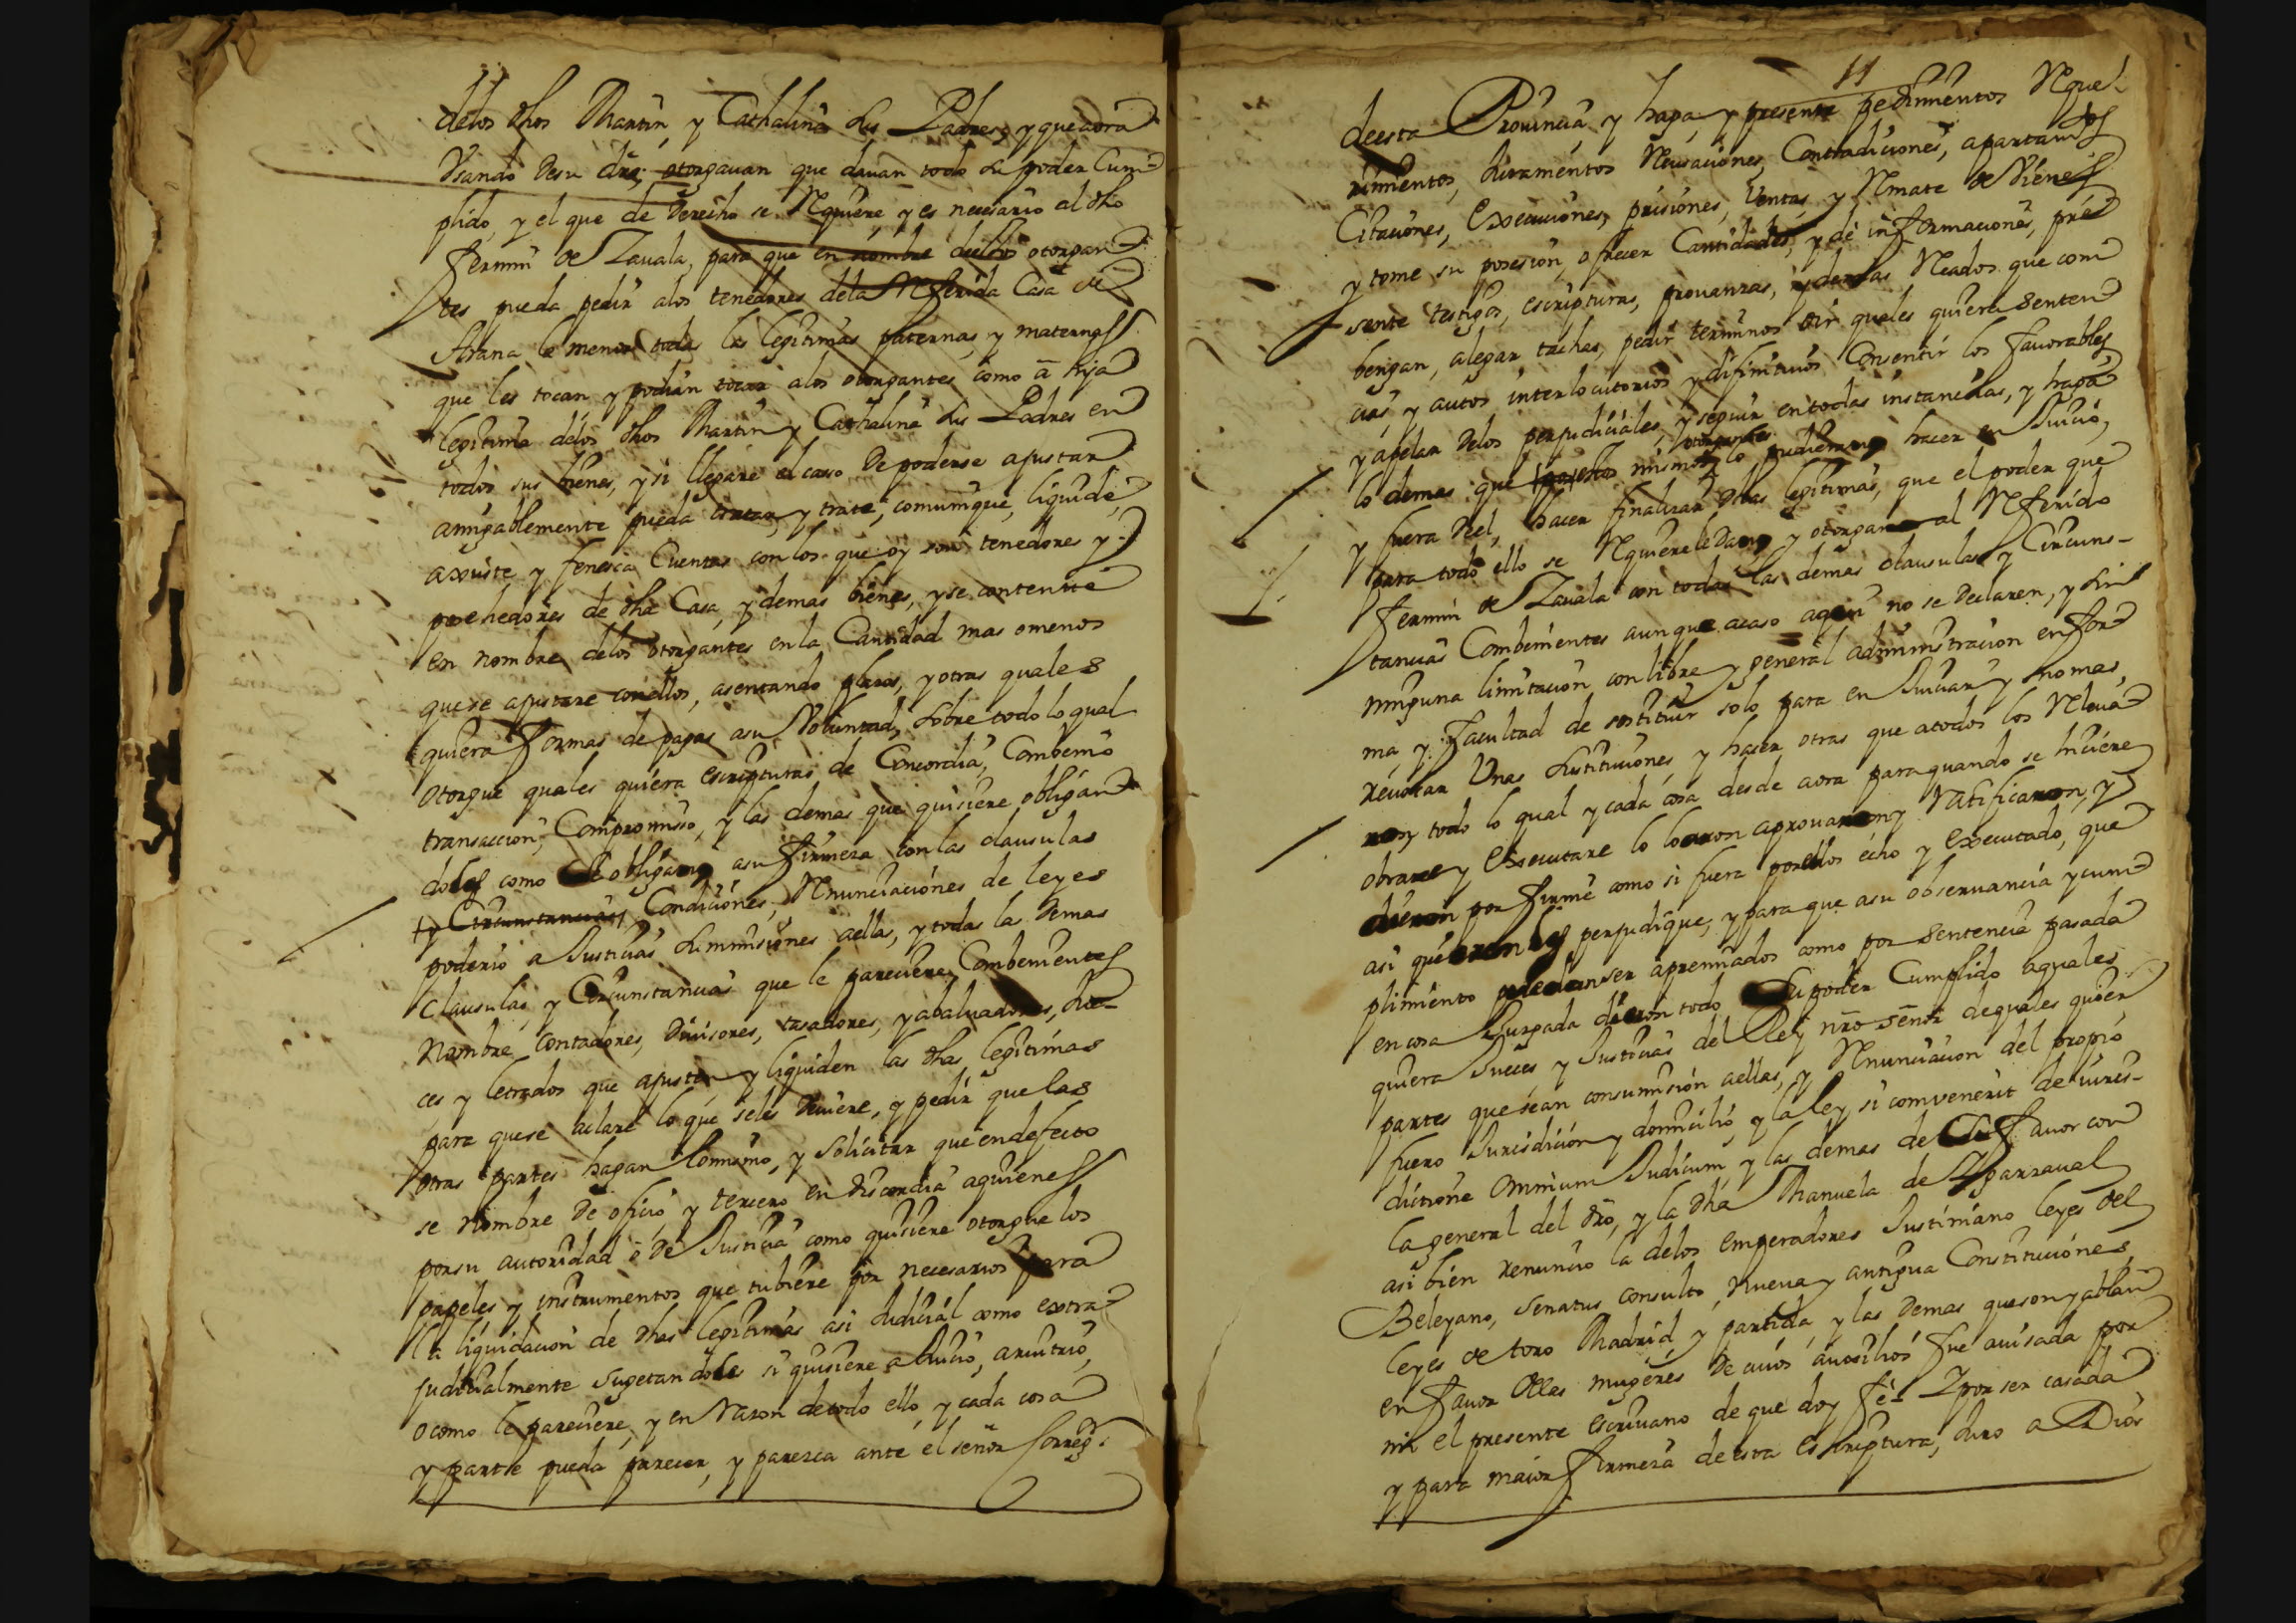 delos dhos Martin y Cathalina sus Padres, y que aora
Vsando desu dro; otorgauan que dauan todo su poder Cum
plido, y el que de derecho se Requiere, y es necesario al dho
fermin de Zauala, para que en nombre delos otorgan
tes pueda pedir alos tenedores dela Referida Casa de
Arana la menor todas las legitimas paternas, y maternas
que les tocan y podian tocar alos otorgantes como a hija
legitima delos dhos Martin y Cathalina sus Padres en
todos sus bienes, y si llegare el caso de poderse ajustar
amigablemente pueda tratar, y trate, comunique, liquide,
axuste, y fenesca Cuentas con los que oy son tenedores y
poehedores de dha Casa, y demas bienes, y se contente
en nombre delos otorgantes en la Cantidad mas omenos
que se ajustare conellos, asentando plazos, y otras quales
quiera formas de pagas asu Voluntad, sobre todo lo qual
otorgue quales quiera escripturas de Concordia, Combenio
transaccion, Compromiso, y las demas que quisiere obligan
dolos como se obligaron asu firmeza con las clausulas
y Circunstancias Condiciones, Renunciaciones de leyes
poderio a Justicias sumisiones aellas, y todas las demas
clausulas, y Circunstancias que le pareciere Combenientes
Nombre Contadores, Diuisores, tasadores, y abaluadores, Jue-
ces y letrados que ajusten y liquiden las dhas legitimas
para quese aclare lo que seles deuiere, y pedir que las
otras partes hagan lomismo, y solicitar que endefecto
se nombre de oficio y tercero en discordia aquienes
porsu autoridad o de Justicia como quisiere otorgue los
papeles y instrumentos que tubiere por necesarios para
la liquidacion de dhas legitimas asi Judicial como extra
judicialmente sugetandolos si quisiere a Juicio, aruitrio,
ocomo le pareciere, y en Razon detodo ello y cada cosa
y parte pueda parecer, y paresca ante el señor Correg.r
11
deesta Prouincia y haga, y presente pedimientos Reque-
rimientos, Juramentos Recusaciones, Contradiciones, apartamtos
Citaciones, Execuciones, prisiones, Ventas, y Remate de Vienes
y tome su posesion, ofrecer Cantidades, y de informaciones, pre
sente testigos, escripturas, prouanzas, y demas Recados que com
bengan, alegar tachas, pedir terminos oir quales quiera senten
cias, y autos interlocutorios y difinitiuos Consentir los fauorables
y apelar delos perjudiciales, y seguir entodas instancias, y haga
otorgantes
lo demas que estos mismos lo pudieran hacer en Juicio,
y fuera del, hacer finalizar dhas legitimas, que el poder que
para todo ello se Requiere le dauan y otorgaron al Referido
fermin de Zauala con todas las demas clausulas y Circuns-
tancias Combenientes aunque acaso aqui no se declaren, y sin
ninguna limitacion con libre y general administracion en for
ma y facultad de sostituir solo para en Juiciar y nomas,
reuocar Vnas sustituciones, y hacer otras que atodos los Releua
ron, todo lo qual y cada cosa desde aora para quando se hiciere
obrare y Executare lo loaron aprouaron y Ratificaron, y
dieron por firme como si fuera porellos echo y Executado, que
asi queran les perjudique, y para que asu obseruancia ycum
plimiento puedan ser apremiados como por sentencia pasada
en cosa Juzgada dieron todo su poder Cumplido aquales
quiera Jueces y Justicias del Rey nro señor dequales quier
partes que sean consumision aellas, y Renunciacion del propio
fuero Jurisdicion y domicilio, y la ley si comvenerit de iuris-
dictione Omnium Judicum y las demas de su fauor con
la general del dro, y la dha Manuela de Yparraual
asi bien renuncio la delos emperadores Justiniano leyes del
Beleyano, senatus consulto, nueua y antigua Constituciones,
leyes de toro Madrid, y partida, y las demas queson yablan
en fauor dllas mugeres de cuios auosilios fue auisada por
mi el presente escriuano de que doy fe- Ypor ser casada
y para maior firmeza de esta escriptura, Juro a Dios